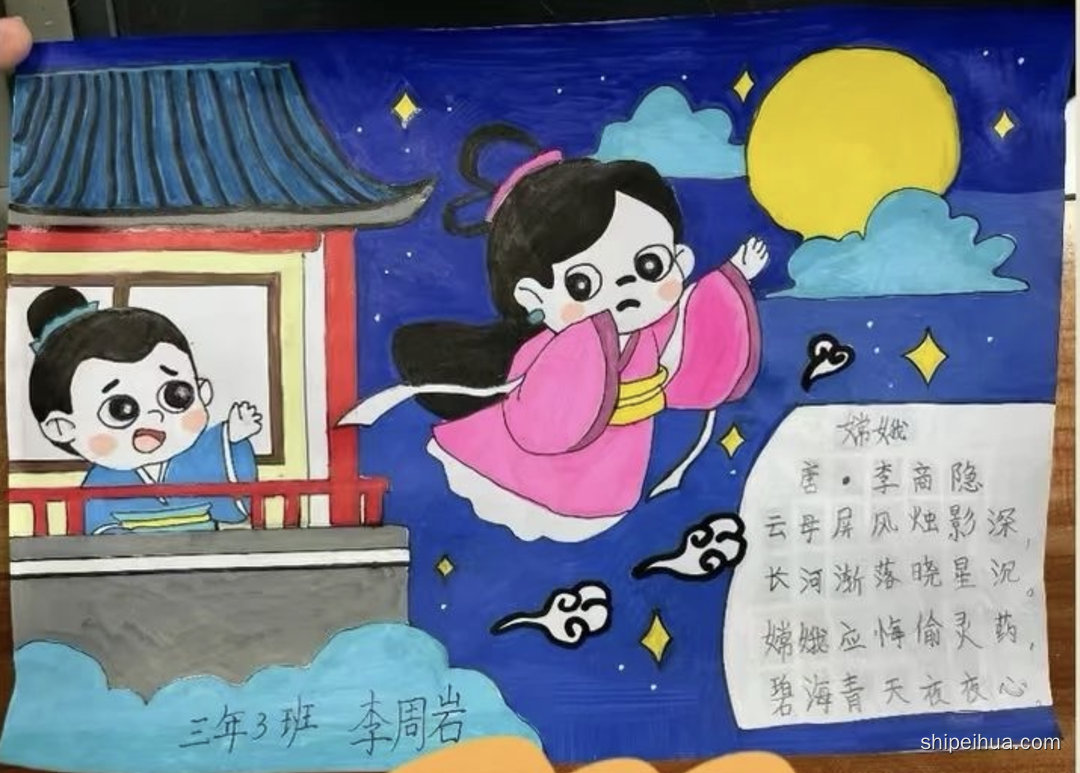 嫦娥
唐·李商隐
云母屏风烛影深,
长河渐落晓星沉。
嫦娥应悔偷灵药,
碧海青天夜夜心。
三年3班 李周岩
shipeihua.com